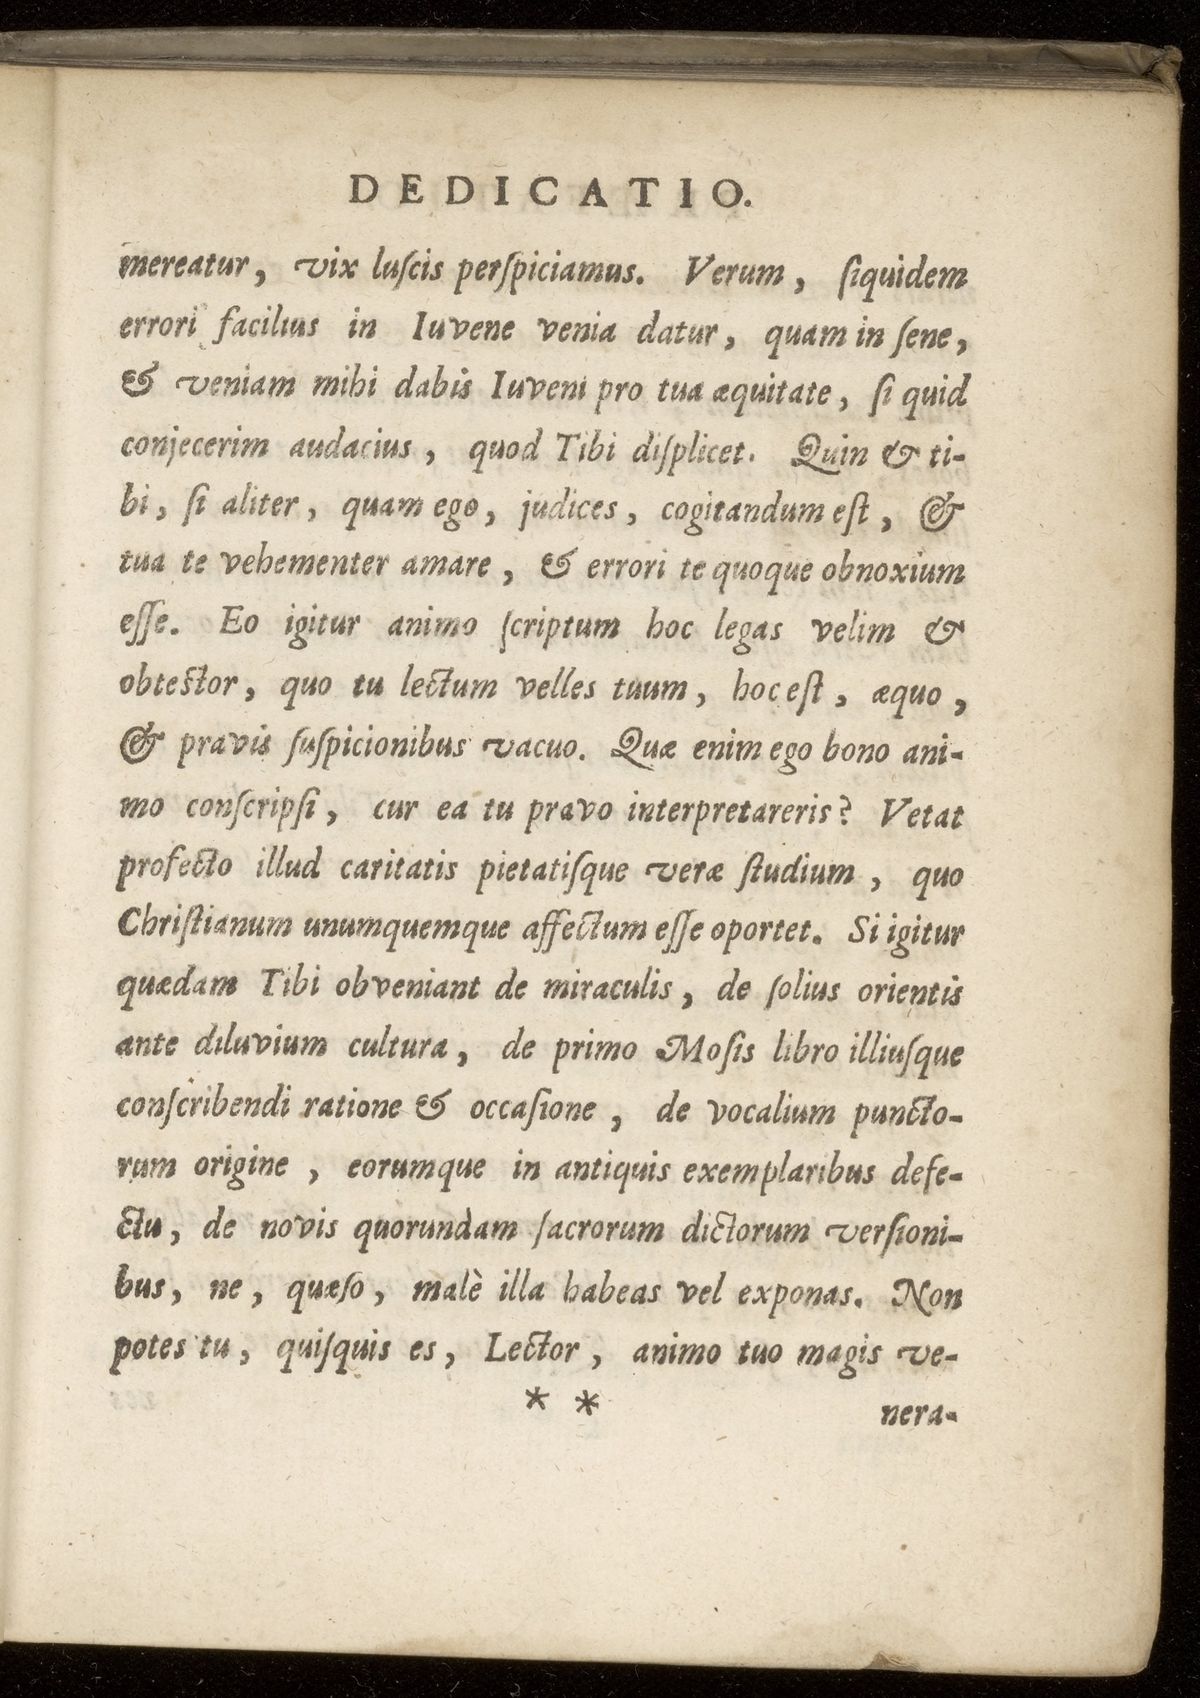 DEDICATIO.
mereatur, vix luſcis perſpiciamus. Verum, ſiquidem
errori facilius in Iuvene venia datur, quam in ſene,
& veniam mihi dabis Iuveni pro tua æquitate, ſi quid
conjecerim audacius, quod Tibi diſplicet. Quin & ti-
bi, ſi aliter, quam ego, judices, cogitandum eſt, &
tua te vehementer amare, & errori te quoque obnoxium
eſſe. Eo igitur animo ſcriptum hoc legas velim &
obteſtor, quo tu lectum velles tuum, hoc eſt, æquo,
& pravis ſuſpicionibus vacuo. Quæ enim ego bono ani-
mo conſcripſi, cur ea tu pravo interpretareris? Vetat
profecto illud caritatis pietatiſque veræ ſtudium, quo
Chriſtianum unumquemque affectum eſſe oportet. Si igitur
quædam Tibi obveniant de miraculis, de ſolius orientis
ante diluvium cultura, de primo Moſis libro illiuſque
conſcribendi ratione & occaſione, de vocalium puncto-
rum origine, eorumque in antiquis exemplaribus defe-
ctu, de novis quorundam ſacrorum dictorum verſioni-
bus, ne, quæſo, malè illa habeas vel exponas. Non
potes tu, quiſquis es, Lector, animo tuo magis ve-
* * nera-